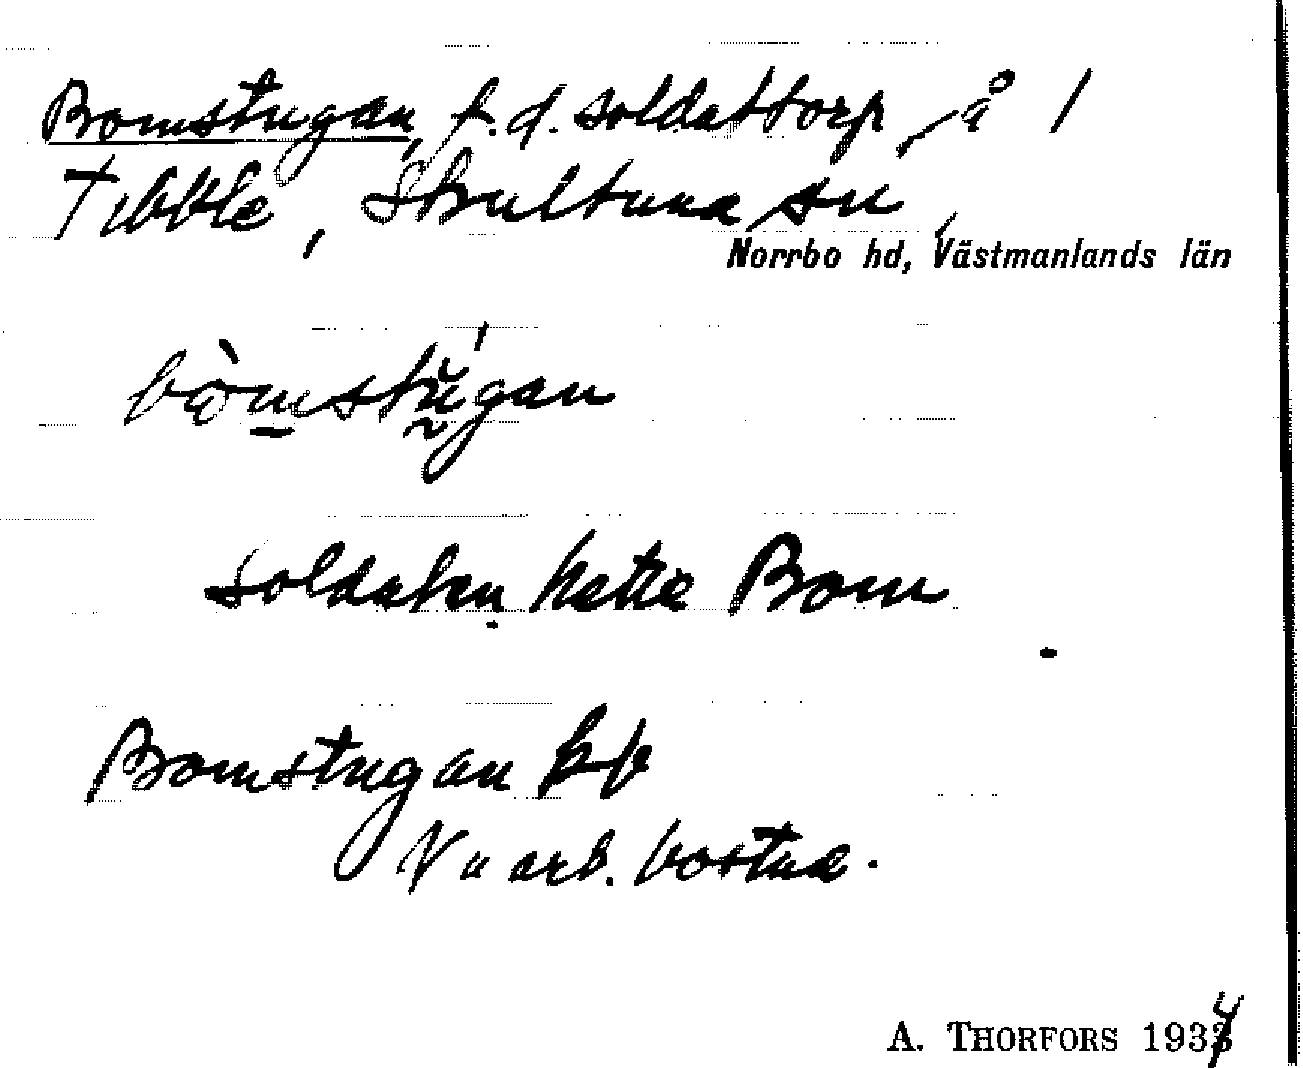 Bomstugan, f.d. soldattorp, å 1
Tibble, Skultuna sn,
Norrbo hd, Västmanlands län
bòmstŭgan
soldaten hette Bom
Bomstugan
Nu arb. bostad.
A. THORFORS 1934